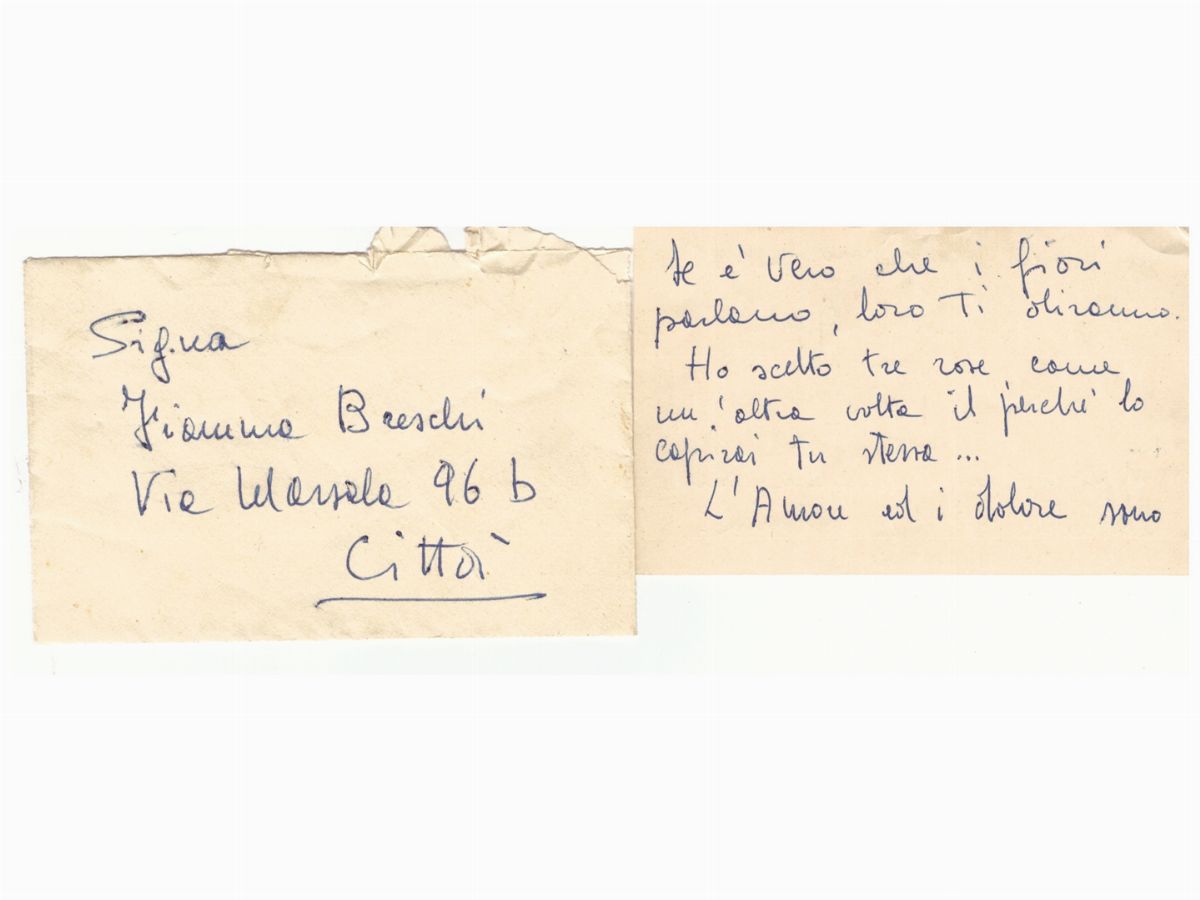 Sig.na
Fiamma Breschi
Via Marsala 96 b
Città
Se è vero che i fiori
parlano, loro Ti diranno.
Ho scelto tre rose come
un'altra volta il perché lo
capirai tu stessa ...
L'Amore ed i dolore sono